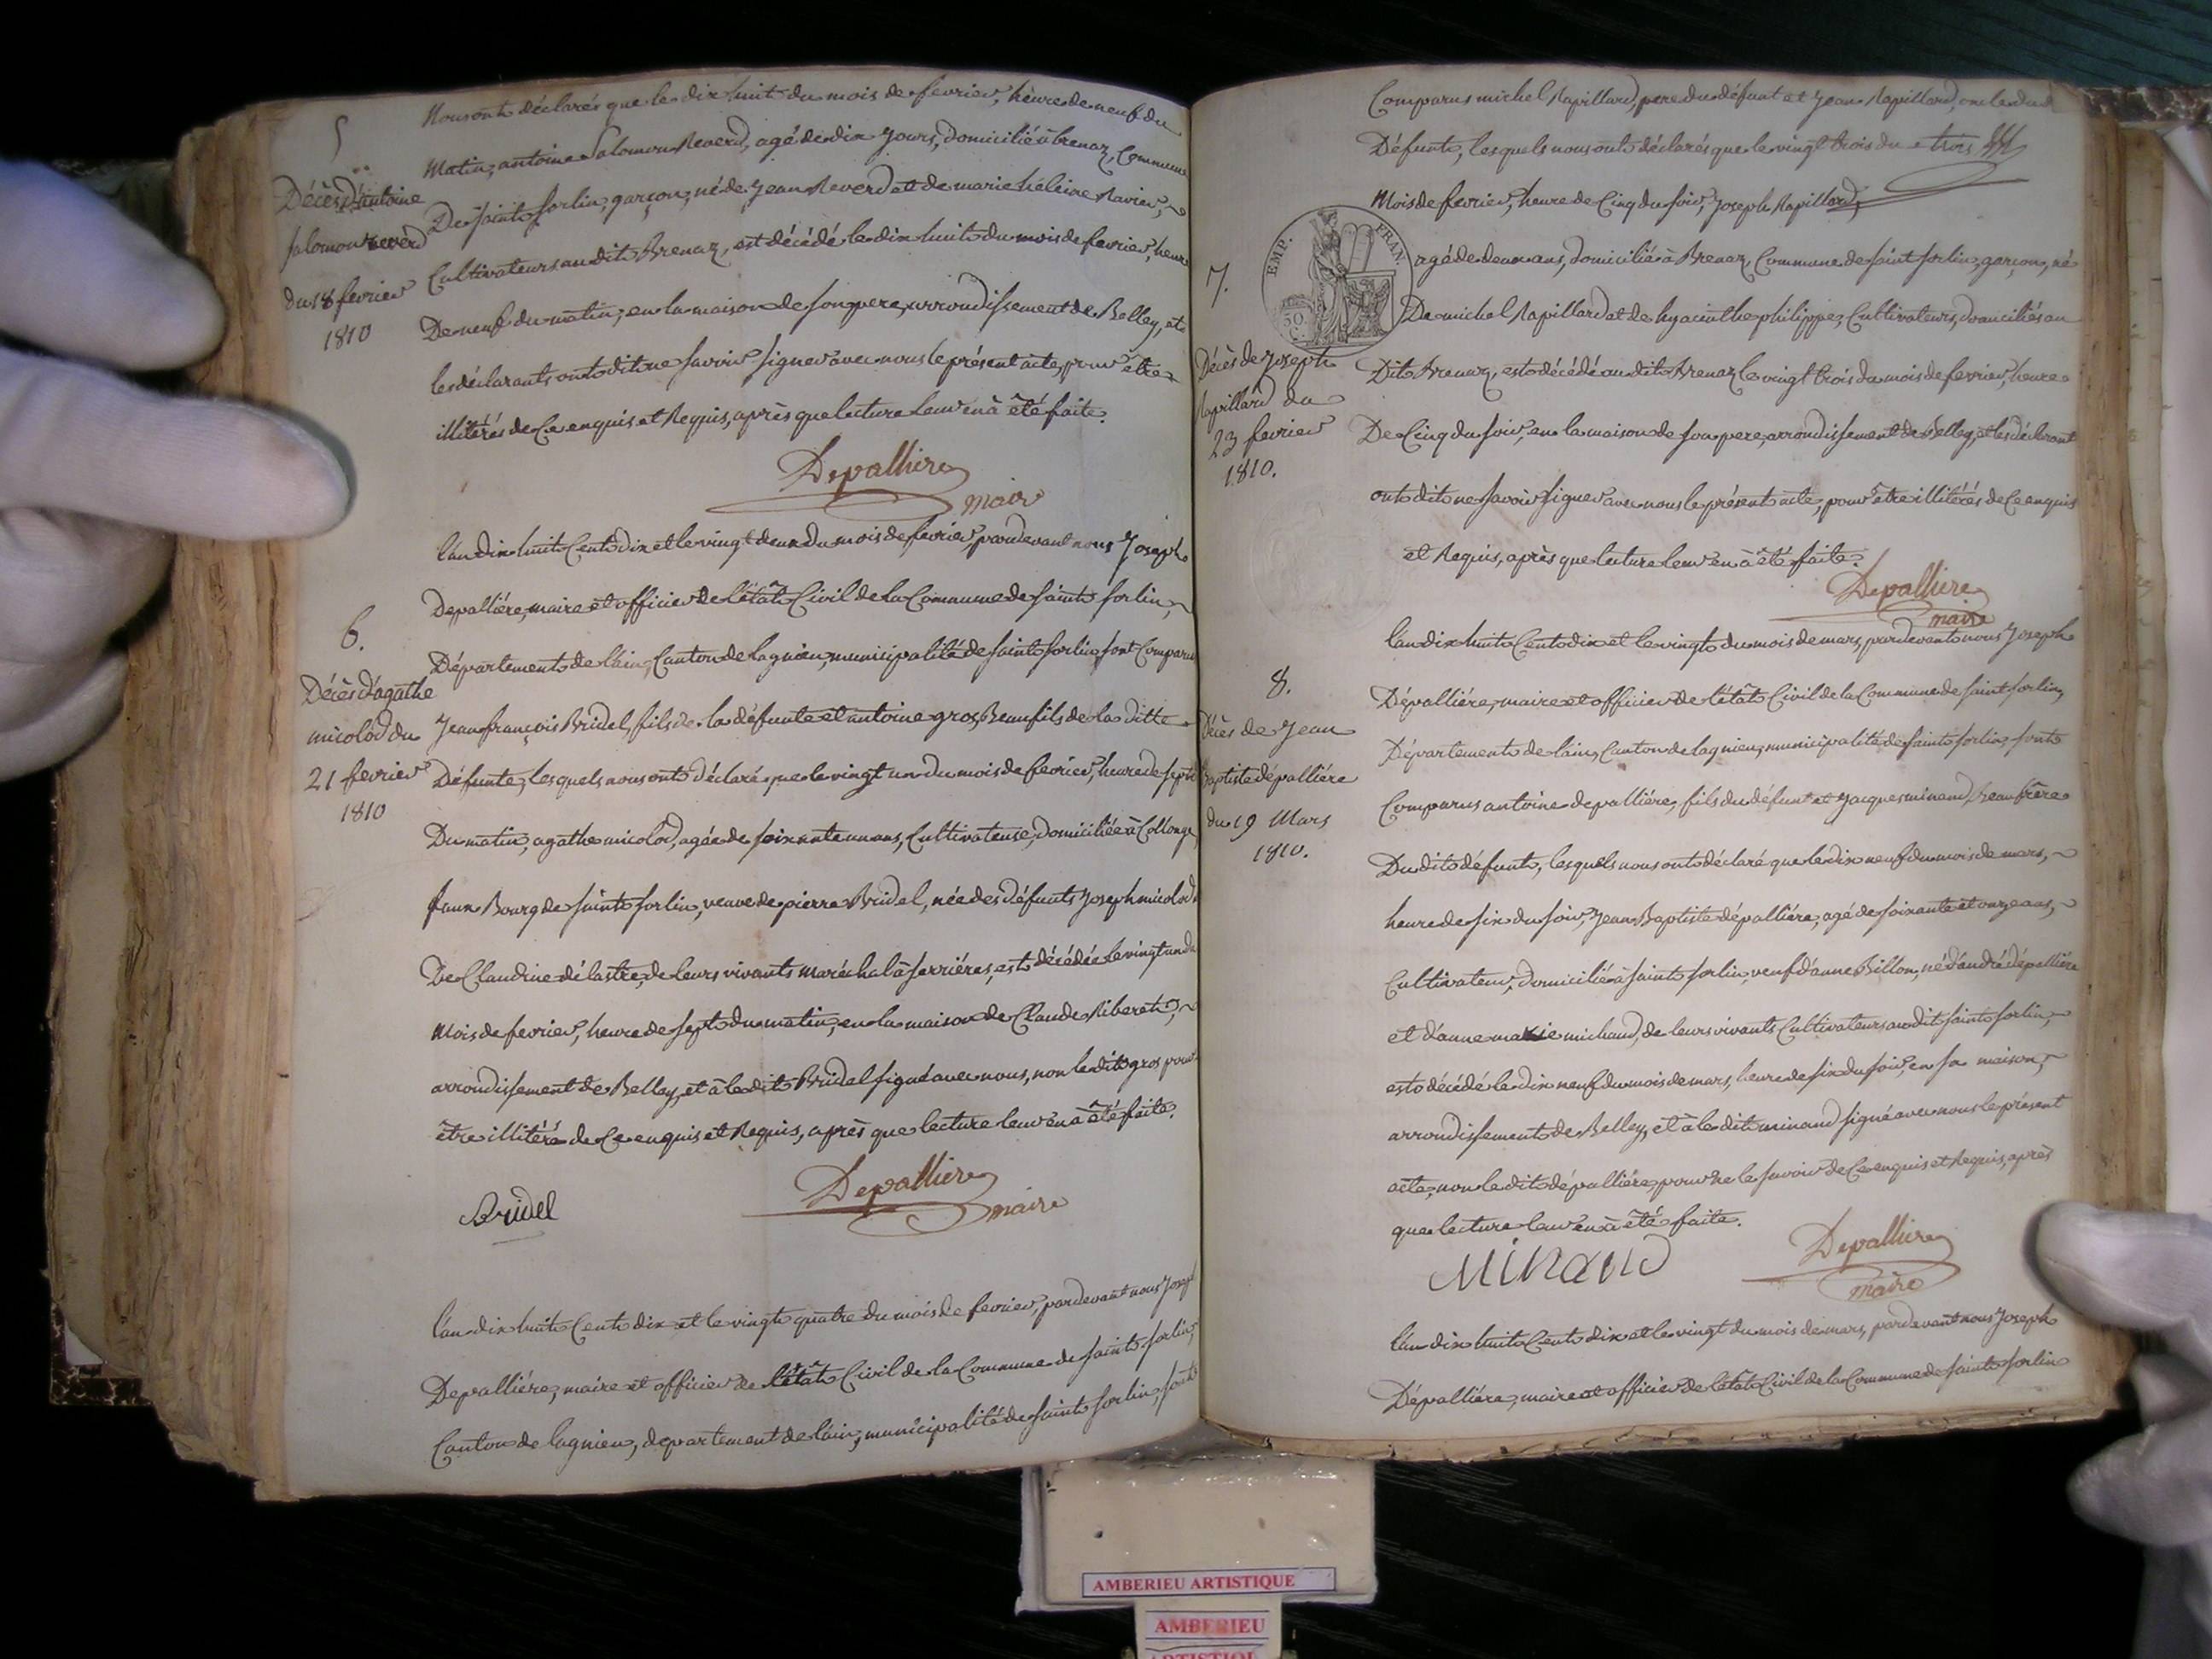 5
Décès d'antoine
salomon reverd
du 18 fevrier
1810
Nous ont déclarés que le dix huit du mois de fevrier, heure de neuf du
Matin, antoine Salomon Reverd, agé de dix Jours, domicilié à brenaz, Commune
De saint sorlin, garçon, né de Jean Reverd et de marie héleine Ravier,
Cultivateurs au dit Brenaz, est décédé le dix huit du mois de fevrier, heure
De neuf du matin, en la maison de son pere, arrondissement de Belley, et
les déclarants ont dit ne savoir signer avec nous le présent acte, pour être
illitérés de Ce enquis et Requis, après que lecture leur en à été faite.
Depalliere
maire
6.
Décès d'agathe
micolod du
21 fevrier
1810
l'an dix huit Cent dix et le vingt deux du mois de fevrier, pardevant nous Joseph
Depalliére, maire et officier de l'état Civil de la Commune de saint sorlin,
Département de l'ain, Canton de lagnieu, municipalité de saint sorlin, sont Comparus
Jean françois Bridel, fils de la défunte et antoine gros, Beau fils de la ditte
Défunte, lesquels nous ont déclaré que le vingt un du mois de fevrier, heure de sept
Du matin, agathe micolod, agée de soixante un ans, Cultivateuse, domiciliée à Collonge
faux Bourg de saint sorlin, veuve de pierre Bridel, née des défunts Joseph micolod
De Claudine délastre, de leurs vivants maréchal à serriéres, est décédée le vingt un du
Mois de fevrier, heure de sept du matin, en la maison de Claude Riberet,
arrondissement de Belley, et à le dit Bridel signé avec nous, non le dit gros pour
être illitéré de Ce enquis et Requis, après que lecture leur en à été faite.
Bridel
Depalliere
maire
l'an dix huit Cent dix et le vingt quatre du mois de fevrier, pardevant nous Joseph
Depalliére, maire et officier de l'état Civil de la Commune de saint sorlin,
Canton de lagnieu, département de l'ain, municipalité de saint sorlin, sont
Comparus michel Rapillard, pere du défunt et Jean Rapillard, oncle du d
Défunt, lesquels nous ont déclarés que le vingt trois du
Mois de fevrier, heure de Cinq du soir, Joseph Rapillard,
EMP. FRAN.
7.
Décès de Joseph
Rapillard du
23 fevrier
1810.
agé de deux ans, domicilié à Brenaz, Commune de saint sorlin, garçon, né
De michel Rapillard et de hyacinthe philippe, Cultivateurs, domiciliés au
Dit Brenaz, est décédé au dit Brenaz le vingt trois du mois de fevrier, heure
De Cinq du soir, en la maison de son pere, arrondissement de Belley, et les déclarant
ont dit ne savoir signer avec nous le présent acte, pour être illitérés de Ce enquis
et Requis, après que lecture leur en à été faite.
Depalliere
maire
8.
Décès de Jean
Baptiste dépalliére
du 19 Mars
1810.
l'an dix huit Cent dix et le vingt du mois de mars, pardevant nous Joseph
Dépalliére, maire et officier de l'état Civil de la Commune de saint sorlin,
Département de l'ain, Canton de lagnieu, municipalité de saint sorlin, sont
Comparus antoine depalliére, fils du défunt et Jacques minand, beau frère
Du dit défunt, lesquels nous ont déclaré que le dix neuf du mois de mars,
heure de six du soir, Jean Baptiste dépalliére, agé de soixante et onze ans,
Cultivateur, domicilié à saint sorlin, veuf d'anne Billon, né d'andré dépalliére
et d'anne marie michaud, de leurs vivants Cultivateurs au dit saint sorlin,
est décédé le dix neuf du mois de mars, heure de six du soir, en sa maison,
arrondissement de Belley, et à le dit minand signé avec nous le présent
acte, non le dit dépalliére, pour ne le savoir de Ce enquis et Requis, après
que lecture leur en à été faite.
Minand
Depalliere
maire
l'an dix huit Cent dix et le vingt du mois de mars, pardevant nous Joseph
Dépalliére, maire et officier de l'état Civil de la Commune de saint sorlin
AMBERIEU ARTISTIQUE
AMBERIEU
ARTISTIQUE